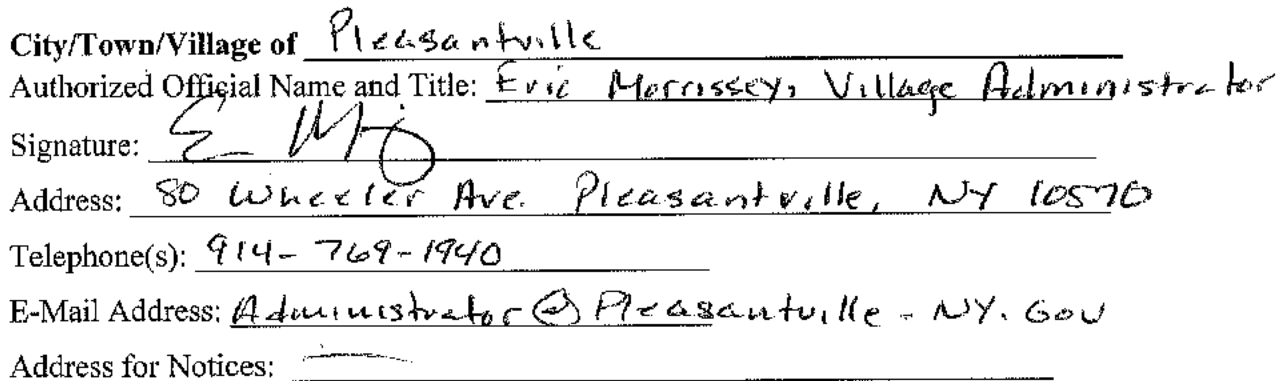 City/Town/Village of Pleasantville
Authorized Official Name and Title: Eric Morrissey, Village Administrator
Signature:
Address: 80 Wheeler Ave. Pleasantville, NY 10570
Telephone(s): 914-769-1940
E-Mail Address: Administrator@Pleasantville-NY.Gov
Address for Notices: —